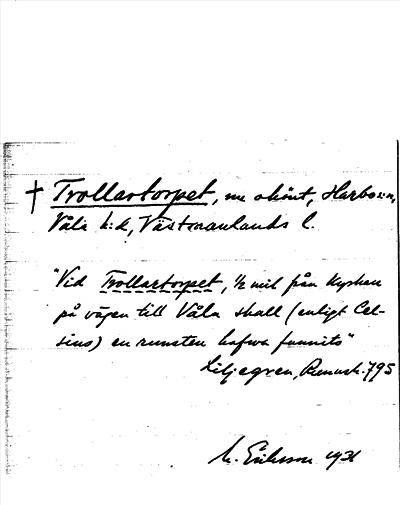 † Trollartorpet, nu okänt, Harbo sn,
Våla hd, Västmanlands l.
"Vid Trollartorpet, ½ mil från Kyrkan
på vägen till Våla skall (enligt Cel-
sius) en runsten hafwa funnits"
Liljegren, Runurk. 795
M. Eriksson 1931